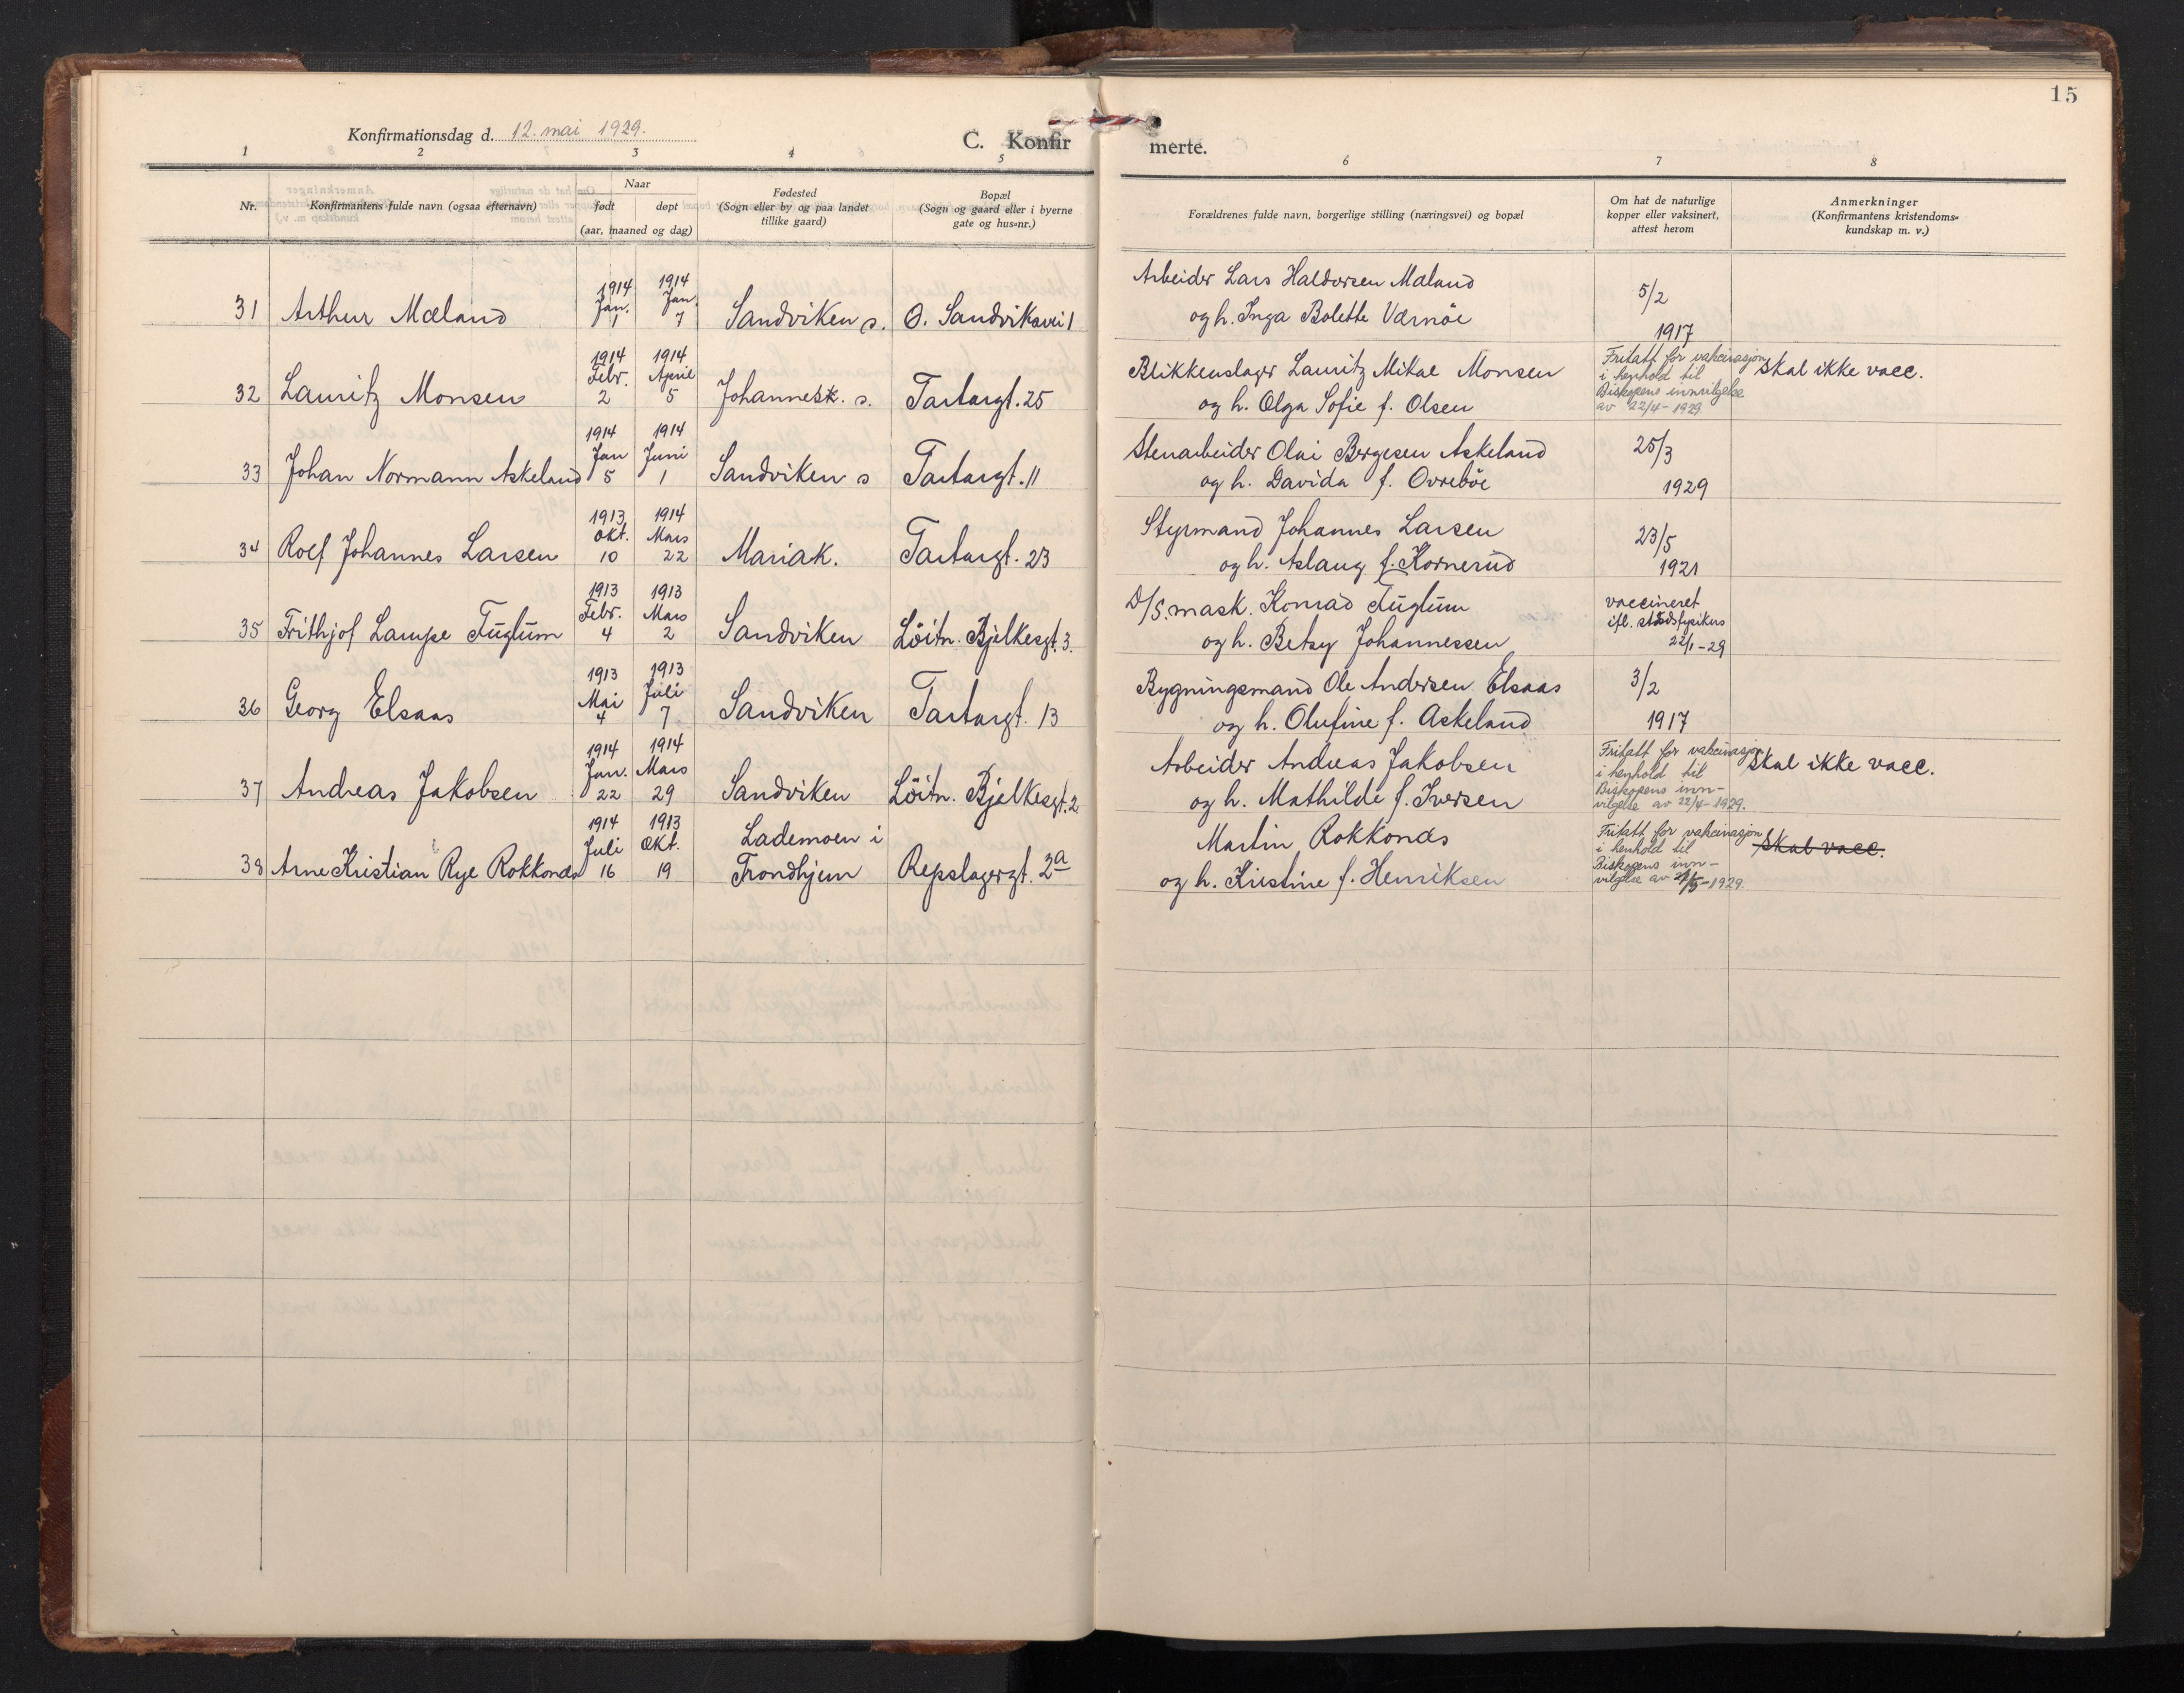 15
Konfirmationsdag d. 12. mai 1929.
C. Konfirmerte.
1 2 3 4 5 6 7 8
Nr.
Konfirmantens fulde navn (ogsaa efternavn)
Naar
født døpt
(aar, maaned og dag)
Fødested
(Sogn eller by og paa landet
tillike gaard)
Bopæl
(Sogn og gaard eller i byerne
gate og hus-nr.)
Forældrenes fulde navn, borgerlige stilling (næringsvei) og bopæl
Om hat de naturlige
kopper eller vaksinert,
attest herom
Anmerkninger
(Konfirmantens kristendoms-
kundskap m. v.)
1914 1914
Jan. Jan.
31 Arthur Mæland 1 7 Sandviken s. Ø. Sandviksvei 1
Arbeider Lars Haldorsen Mæland
og h. Inga Bolette Værnöe
5/2
1917
1914 1914
Febr. April
32 Lauritz Monsen 2 5 Johannesk. s. Tartargt. 25
Blikkenslager Lauritz Mikal Monsen
og h. Olga Sofie f. Olsen
Fritatt for vakcinasjon
i henhold til
Biskopens innvilgelse
av 22/4-1929
Skal ikke vacc.
1914 1914
Jan Juni
33 Johan Normann Askeland 5 1 Sandviken s Tartargt. 11
Stenarbeider Olai Bergesen Askeland
og h. Davida f. Ovreböe
25/3
1929
1913 1914
Okt. Mars
34 Rolf Johannes Larsen 10 22 Mariak. Tartargt. 23
Styrmand Johannes Larsen
og h. Aslaug f. Kornerud
23/5
1921
1913 1913
Febr. Mars
35 Frithjof Lampe Fuglum 4 2 Sandviken Löitn. Bjelkesgt. 3.
D/S. mask. Konrad Fuglum
og h. Betsy Johannessen
vaccineret
ifl. stadsfysikus
22/1-29
1913 1913
Mai Juli
36 Georg Elsaas 4 7 Sandviken Tartargt. 13
Bygningsmand Ole Andersen Elsaas
og h. Olufine f. Askeland
3/2
1917
1914 1914
Jan. Mars
37 Andreas Jakobsen 22 29 Sandviken Löitn. Bjelkesgt. 2
Arbeider Andreas Jakobsen
og h. Mathilde f. Iversen
Fritatt for vakcinasjon
i henhold til
Biskopens inn-
vilgelse av 22/4-1929.
Skal ikke vacc.
1914 1913
Juli Okt.
Lademoen i
38 Arne Kristian Rye Rokkonæs 16 19 Trondhjem Repslagergt. 2a
Martin Rokkonæs
og h. Kristine f. Henriksen
Fritatt for vakcinasjon
i henhold til
Biskopens inn-
vilgelse av /5-1929.
Skal vacc.